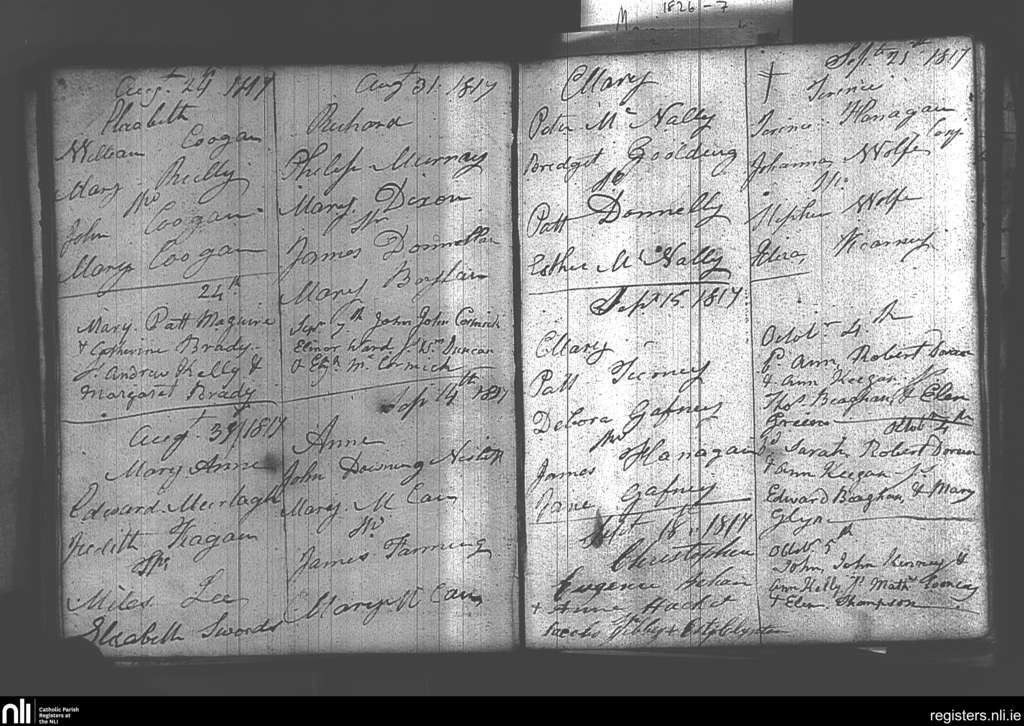 1826-7
Augt 24th 1817
Elizabeth
William Coogan
Mary Reilly
Sps
John Coogan
Mary Coogan
24th
Mary. Patt Maguire
& Catherine Brady.
Sps. Andrew Kelly &
Margaret Brady
Augt 1817
Mary Anne
Edward Murtagh
Judith Fagan
Sps
Miles Lee
Elizabeth Swords
Augt 31. 1817
Richard
Philip Murray
Mary Dixon
Sps
James Donnellan
Mary Boylan
Sepr 7th John John Cormick
Elinor Ward Sps. Wm Duncan
& Mc Cormick
Sept 14th 1817
Anne
John Downing
Mary Mc Cann
Sps
James Fanning
Mary Mc Cann
Mary
Peter Mc Nally
Bridget Gooldting
Sps
Patt Donnelly
Esther Mc Nally
Sept 15. 1817
Mary
Patt Tierney
Debora Gafney
Sps
James Flanagan
Jane Gafney
Sept 18. 1817
Christopher
Eugene
+ Anne Hacket
Sept 21st 1817
Terence
Terence Flanagan
Johanna Wolfe
Sps
Stephen Wolfe
Eliza Kearney
Octobr 4th
Bp. Ann, Robert Doran
& Ann Keegan. Sps
Thos Beaghan, & Elen
Greene
Octob 4th
Sarah Robert Doran
& Ann Keegan Sps
Edward Beaghan, & Mary
Glyn
Octobr 5th
John, John Kearney &
Ann Kelly Sps Mathw
& Elen Thompson
nli
Catholic Parish
Registers at
the NLI
registers.nli.ie